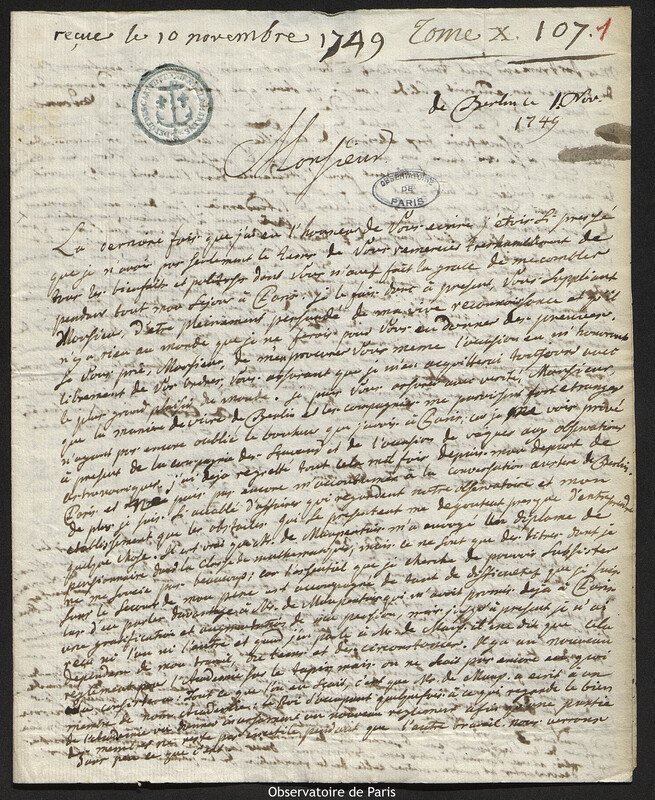 reçue le 10 novembre 1749 Tome X. 107. 1
de Berlin le 1. Nov.
1749
Monsieur
OBSERVATOIRE
DE
PARIS
La derniere fois que j'ai eu l'honneur de Vous ecrire j'etois si pressé
que je n'avois pas seulement le tems de Vous remercier treshumblement de
tous les bienfaits et politesses dont Vous m'avez fait la grace de me combler
pendant tout mon sejour à Paris. Je le fais donc à present, Vous suppliant
Monsieur, d'etre pleinement persuadé de ma vive reconnoissance et qu'il
n'y a rien au monde que je ne ferois pour Vous en donner des preuves.
Je Vous prie, Monsieur, de m'en procurer Vous meme l'occasion en m'honorant
librement de Vos ordres, Vous assurant que je m'en acquitterai toujours avec
le plus grand plaisir du monde. Je puis Vous assurer avec verité, Monsieur,
que la maniere de vivre de Berlin et les compagnies me paroissent fort etranges
n'ayant pas encore oublié le bonheur que j'avois à Paris, car je me vois privé
à present de la compagnie des Savans et de l'occasion de vaquer aux observations
astronomiques. j'ai deja regretté tout cela mil fois depuis mon depart de
Paris et ne puis pas encore m'accoutumer à la conversation austere de Berlin.
De plus je suis si accablé d'affaires qui regardent notre observatoire et mon
etablissement que les obstacles qui se presentent me degoutent presque d'entreprendre
quelque chose. Il est vrai que Mr. de Maupertuis m'a envoyé un diplome de
pensionnaire dans la Classe de mathematique, mais ce ne sont que des titres dont je
ne me soucie pas beaucoup; car l'essentiel que je cherche de pouvoir subsister
sans le secours de mon pere est accompagné de tant de difficultez que je suis
las d'en parler davantage à Mr. de Maupertuis qui m'avoit promis deja à Paris
une gratification et augmentation de ma pension, mais jusqu'à present je n'ai
reçu ni l'un ni l'autre et quand j'en parle à Mr. de Maup. il me dit que cela
dependra de mon travail, du tems et des circonstances. Il y a un nouveau
reglement pour l'Academie sur le tapis mais on ne sait pas encore en quoi
il consistera. Tout ce que l'on en sait, c'est que Mr. de Maup. a ecrit à un
membre de notre Academie: le Roi s'occupant quelquefois à ce qui regarde le bien
de l'Academie nous donnera incessamment un nouveau reglement afin qu'une partie
des membres ne reste pas inutile pendant que l'autre travail. nous verrons
dans peu ce que c'est.
Observatoire de Paris